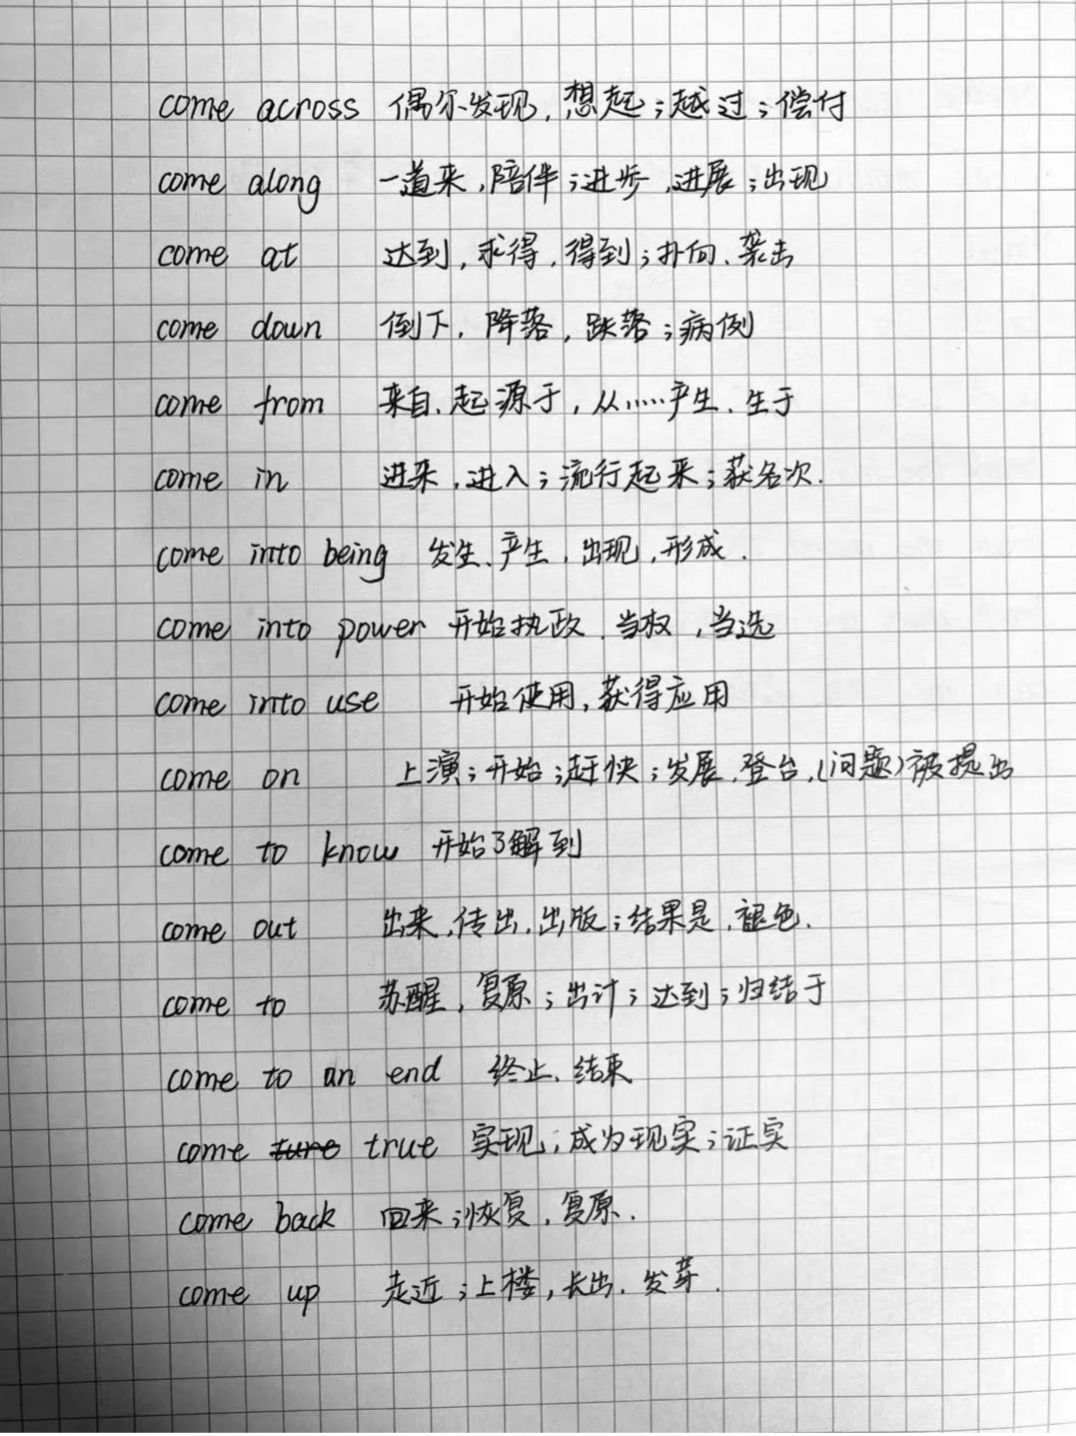 come across 偶尔发现,想起;越过;偿付
come along 一道来,陪伴;进步,进展;出现
come at 达到,求得,得到;扑向、袭击
come down 倒下,降落,跌落;病倒
come from 来自、起源于,从……产生、生于
come in 进来,进入;流行起来;获名次.
come into being 发生、产生,出现,形成.
come into power 开始执政、当权,当选
come into use 开始使用,获得应用
come on 上演;开始;赶快;发展,登台,(问题)被提出
come to know 开始了解到
come out 出来,传出,出版;结果是,褪色.
come to 苏醒,复原;共计;达到;归结于
come to an end 终止、结束
come ture true 实现,成为现实;证实
come back 回来;恢复,复原.
come up 走近;上楼,长出,发芽.